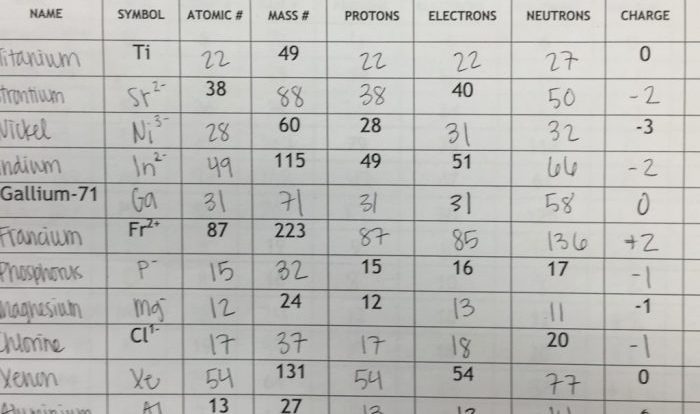 NAME SYMBOL ATOMIC # MASS # PROTONS ELECTRONS NEUTRONS CHARGE
Titanium Ti 22 49 22 22 27 0
trontium Sr²⁻ 38 88 38 40 50 -2
Nickel Ni³⁻ 28 60 28 31 32 -3
ndium In²⁻ 49 115 49 51 66 -2
Gallium-71 Ga 31 71 31 31 58 0
Francium Fr²⁺ 87 223 87 85 136 +2
Phosphorus P⁻ 15 32 15 16 17 -1
Magnesium Mg⁻ 12 24 12 13 11 -1
Chlorine Cl¹⁻ 17 37 17 18 20 -1
Xenon Xe 54 131 54 54 77 0
Aluminium Al 13 27 13